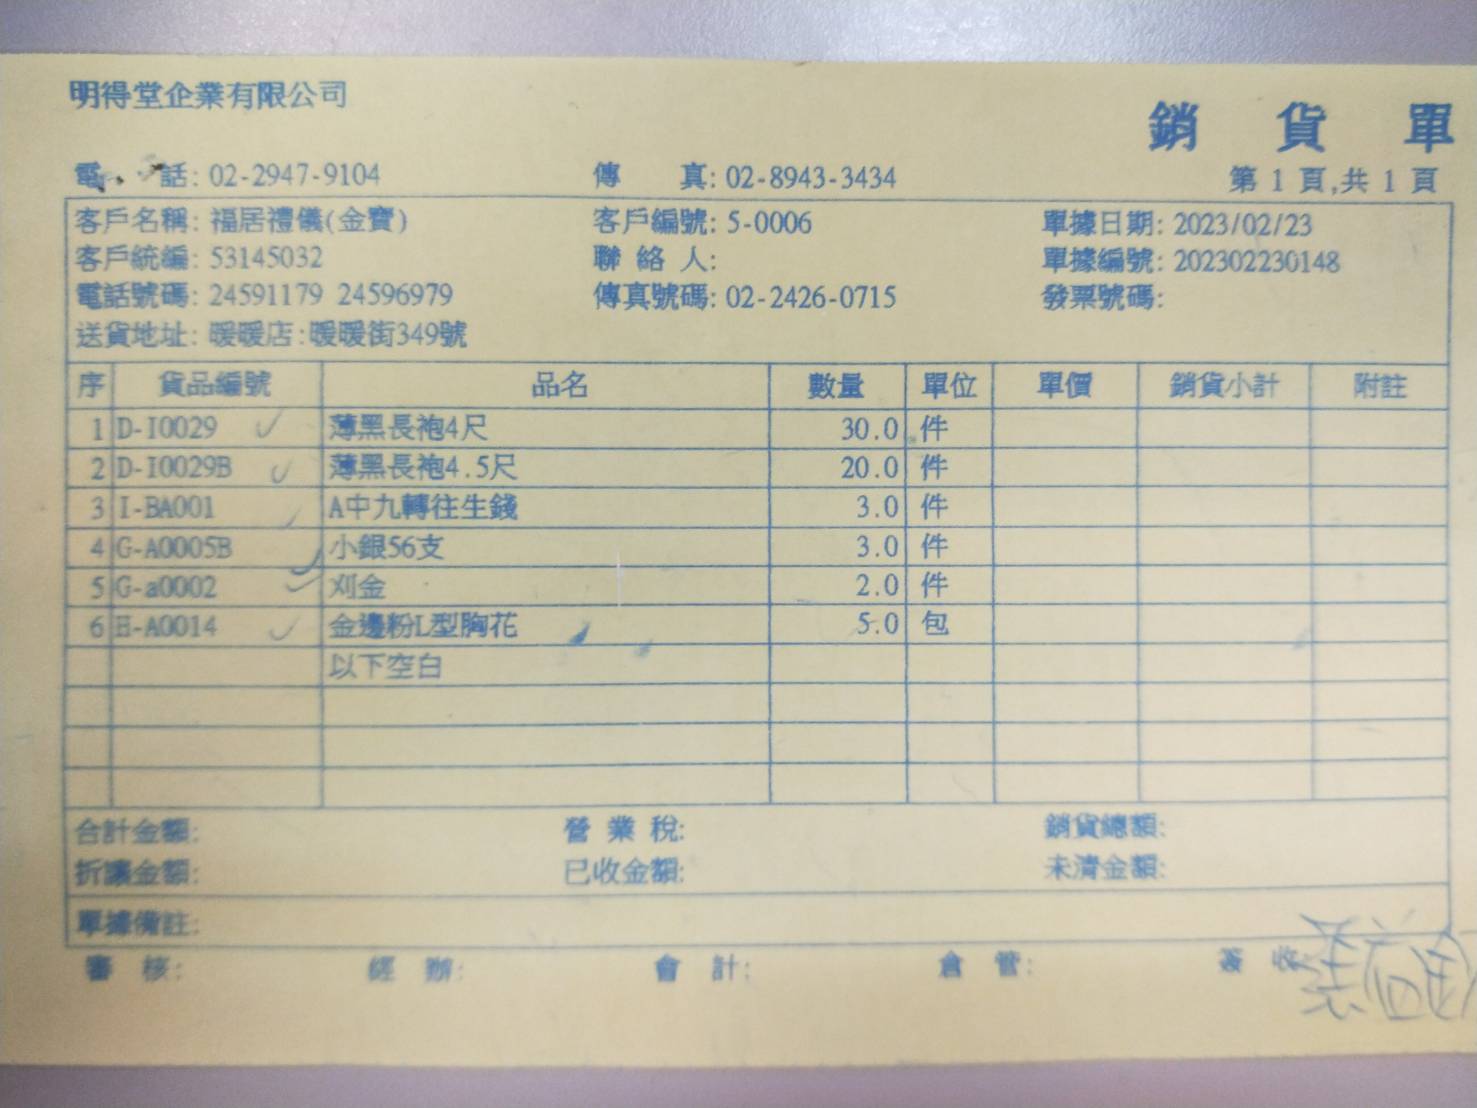 明得堂企業有限公司
銷貨單
電 話: 02-2947-9104 傳 真: 02-8943-3434 第 1 頁,共 1 頁
客戶名稱: 福居禮儀(金寶) 客戶編號: 5-0006 單據日期: 2023/02/23
客戶統編: 53145032 聯 絡 人: 單據編號: 202302230148
電話號碼: 24591179 24596979 傳真號碼: 02-2426-0715 發票號碼:
送貨地址: 暖暖店:暖暖街349號
序 貨品編號 品名 數量 單位 單價 銷貨小計 附註
1 D-I0029 薄黑長袍4尺 30.0 件
2 D-I0029B 薄黑長袍4.5尺 20.0 件
3 I-BA001 A中九轉往生錢 3.0 件
4 G-A0005B 小銀56支 3.0 件
5 G-a0002 刈金 2.0 件
6 H-A0014 金邊粉L型胸花 5.0 包
以下空白
合計金額: 營 業 稅: 銷貨總額:
折讓金額: 已收金額: 未清金額:
單據備註:
審 核: 經 辦: 會 計: 倉 管: 簽 收